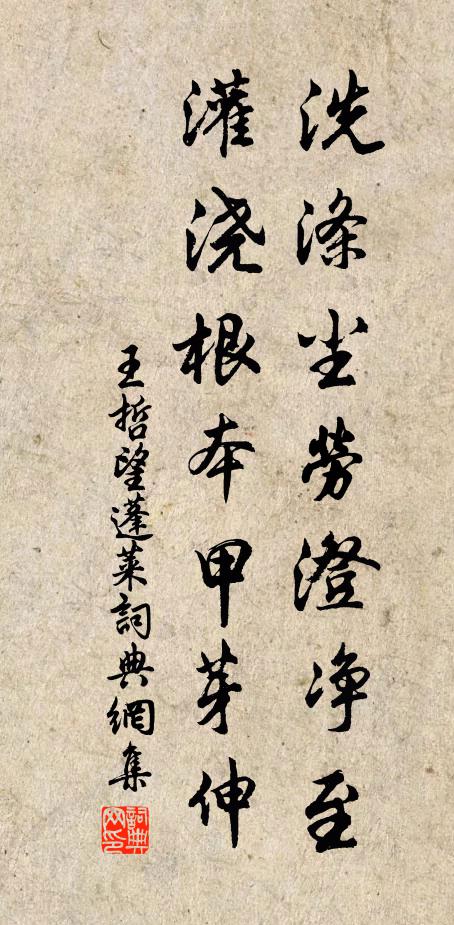 洗涤尘劳澄净至
灌浇根本甲芽伸
王哲望蓬莱詞典網集
詞典网印